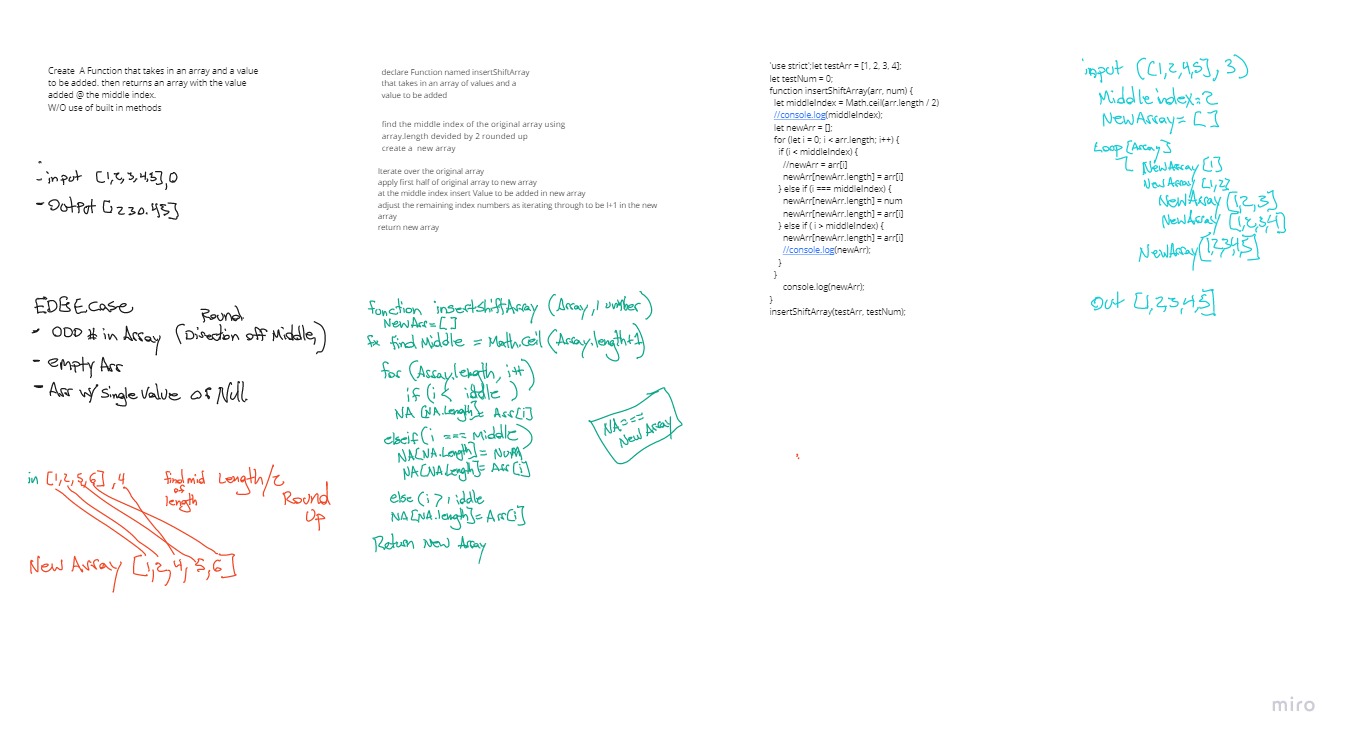 Create A Function that takes in an array and a value
to be added. then returns an array with the value
added @ the middle index.
W/O use of built in methods
- input [1,2,3,4,5],0
- Output [1230.45]
EDGE case
- ODD # in Array (Round Direction off Middle,)
- empty Arr
- Arr w/ Single Value or Null
in [1,2,5,6] ,4
find mid of length
Length/2
Round
Up
New Array [1,2,4,5,6]
declare Function named insertShiftArray
that takes in an array of values and a
value to be added
find the middle index of the original array using
array.length devided by 2 rounded up
create a new array
Iterate over the original array
apply first half of original array to new array
at the middle index insert Value to be added in new array
adjust the remaining index numbers as iterating through to be I+1 in the new
array
return new array
function insertShiftArray (Array, number)
NewArr=[]
find Middle = Math.Ceil (Array.length+1)
for (Array.length, i++)
if (i < iddle )
NA [NA.Length]= Arr[i]
elseif (i === Middle)
NA[NA.Length]= Num
NA[NA.Length]= Arr [i]
else (i > iddle
NA[NA.length]= Arr[i]
Return New Array
NA===
New Array
'use strict';let testArr = [1, 2, 3, 4];
let testNum = 0;
function insertShiftArray(arr, num) {
let middleIndex = Math.ceil(arr.length / 2)
//console.log(middleIndex);
let newArr = [];
for (let i = 0; i < arr.length; i++) {
if (i < middleIndex) {
//newArr = arr[i]
newArr[newArr.length] = arr[i]
} else if (i === middleIndex) {
newArr[newArr.length] = num
newArr[newArr.length] = arr[i]
} else if ( i > middleIndex) {
newArr[newArr.length] = arr[i]
//console.log(newArr);
}
}
console.log(newArr);
}
insertShiftArray(testArr, testNum);
input ([1,2,4,5], 3)
Middle index=2
NewArray= []
Loop [Array]
NewArray [1]
NewArray [1,2]
NewArray [1,2,3]
NewArray [1,2,3,4]
NewArray [1,2,3,4,5]
Out [1,2,3,4,5]
miro